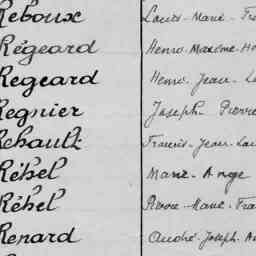 Reboux Louis - Marie - Fra
Régeard Henri - Maxime - Ho
Regeard Henri - Jean - L
Regnier Joseph - Pierre
Rehault Francis - Jean - Lou
Réhel Marie - Ange
Réhel Pierre - Marie - Fra
Renard André - Joseph - Au